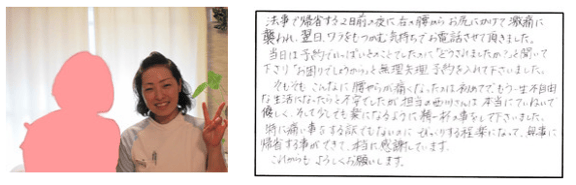 法事で帰省する2日前の夜に右の腰からお尻にかけて激痛に
襲われ、翌日、ワラをもつかむ気持ちでお電話させて頂きました。
当日は予約でいっぱいとのことでしたのに「どうされましたか?」と聞いて
下さり「お困りでしょうから」と無理矢理予約を入れて下さいました。
そもそも こんなに腰やらが痛くなったのは初めてで、もう一生不自由
な生活になったらと不安でしたが 担当の西川さんは 本当にていねいで
優しく、そして少しでも楽になるように精一杯の事をして下さいました。
特に痛い事をする訳でもないのに びっくりする程楽になって、無事に
帰省する事ができて、本当に感謝しています。
これからも よろしくお願いします。